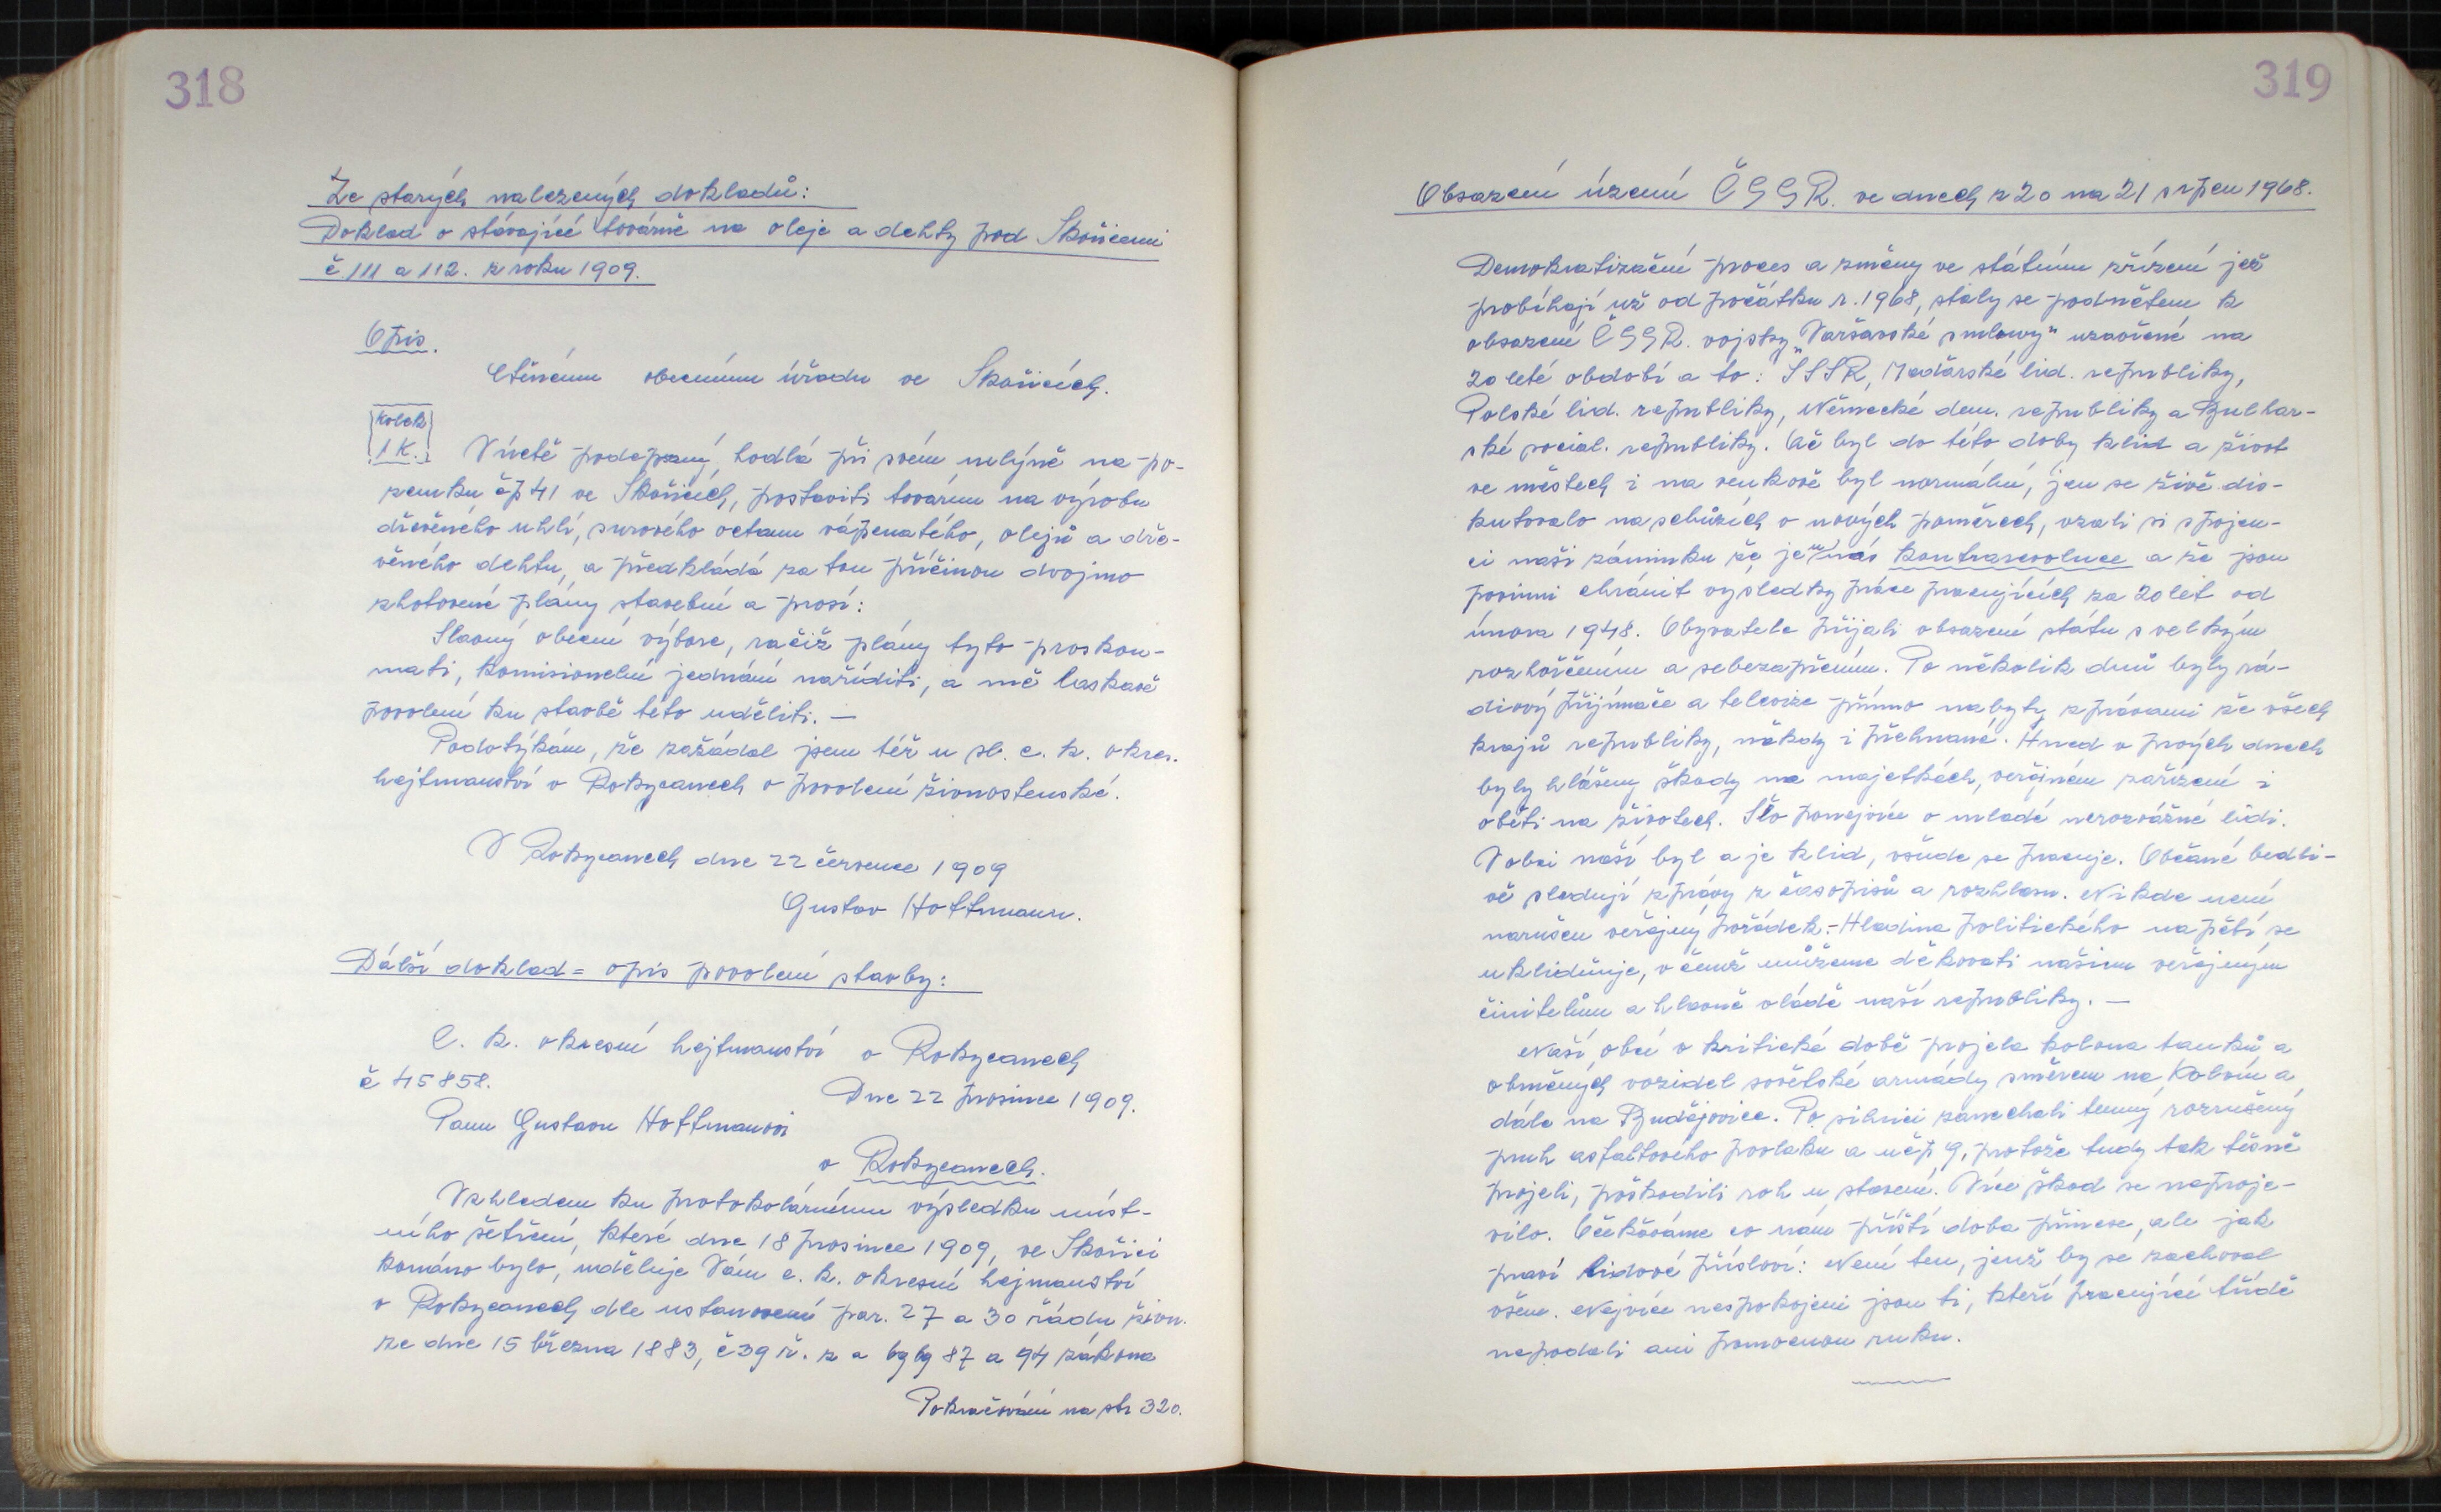 318
Ze starých nalezených dokladů:
Doklad o stávající továrně na oleje a dehty pod Skořicemi
č 111 a 112. z roku 1909.
Opis.
Ctěnému obecnímu úřadu ve Skořicích.
kolek
1 K.
Vúctě podepsaný, hodlá při svém mlýně na po-
zemku čp 41 ve Skořicích, postaviti továrnu na výrobu
dřevěného uhlí, surového octanu vápenatého, olejů a dře-
věného dehtu, a předkládá za tou příčinou dvojmo
zhotovené plány stavební a prosí:
Slavný obecní výbore, račiž plány tyto proskou-
mati, komisionelní jednání naříditi, a mě laskavě
povolení ku stavbě této uděliti. —
Podotýkám, že zažádal jsem též u sl. c. k. okres.
hejtmanství v Rokycanech o povolení živnostenské.
V Rokycanech dne 22 července 1909
Gustav Hoffmann.
Dálší doklad = opis povolení stavby:
C. k. okresní hejtmanství v Rokycanech
č 45858.
Dne 22 prosince 1909.
Panu Gustavu Hoffmanovi
v Rokycanech.
Vzhledem ku protokolárnímu výsledku míst-
ního šetření, které dne 18 prosince 1909, ve Skořici
konáno bylo, uděluje Vám c. k. okresní hejmanství
v Rokycanech dle ustanovení par. 27 a 30 řádu živn.
ze dne 15 března 1883, č 39 ř. z a 87 a 94 zákona
Pokračování na str 320.
319
Obsazení území ČSSR. ve dnech z 20 na 21 srpen 1968.
Demokratizační proces a změny ve státním zřízení jež
probíhají už od počátku r. 1968, staly se podnětem k
obsazení ČSSR. vojsky „Varšavské smlouvy" uzavřené na
20 leté období a to: SSSR, Maďarské lid. republiky,
Polské lid. republiky, Německé dem. republiky a Bulhar-
ské social. republiky. Ač byl do této doby klid a život
ve městech i na venkově byl normální, jen se živě dis-
kutovalo na schůzích o nových poměrech, vzali si spojen-
ci naši záminku že je u nás kontrarevoluce a že jsou
povinni chránit výsledky práce pracujících za 20 let od
února 1948. Obyvatelé přijali obsazení státu s velkým
rozhořčením a sebezapřením. Po několik dnů byly rá-
diový přijímače a televize přímo nabyty zprávami ze všech
krajů republiky, někdy i přehnané. Hned v prvých dnech
byly hlášeny škody na majetkách, veřejném zařízení i
oběti na životech. Šlo ponejvíce o mladé nerozvážné lidi.
V obci naší byl a je klid, všude se pracuje. Občané bedli-
vě sledují zprávy z časopisů a rozhlasu. Nikde není
narušen veřejný pořádek. - Hladina politického napětí se
uklidňuje, v čemž můžeme děkovati našim veřejným
činitelům a hlavně vládě naší republiky. —
Naší obcí v kritické době projela kolona tanků a
obrněných vozidel sovětské armády směrem na Kolvín a
dále na Budějovice. Po silnici zanechali temný rozrušený
pruh asfaltového povlaku a u čp 9, protože tudy tak těsně
projeli, poškodili roh u stavení. Více škod se neproje-
vilo. Očekáváme co nám příští doba přinese, ale jak
praví lidové přísloví: Není ten, jenž by se zachoval
všem. Nejvíce nespokojeni jsou ti, kteří pracující třídě
nepodali ani pomocnou ruku.